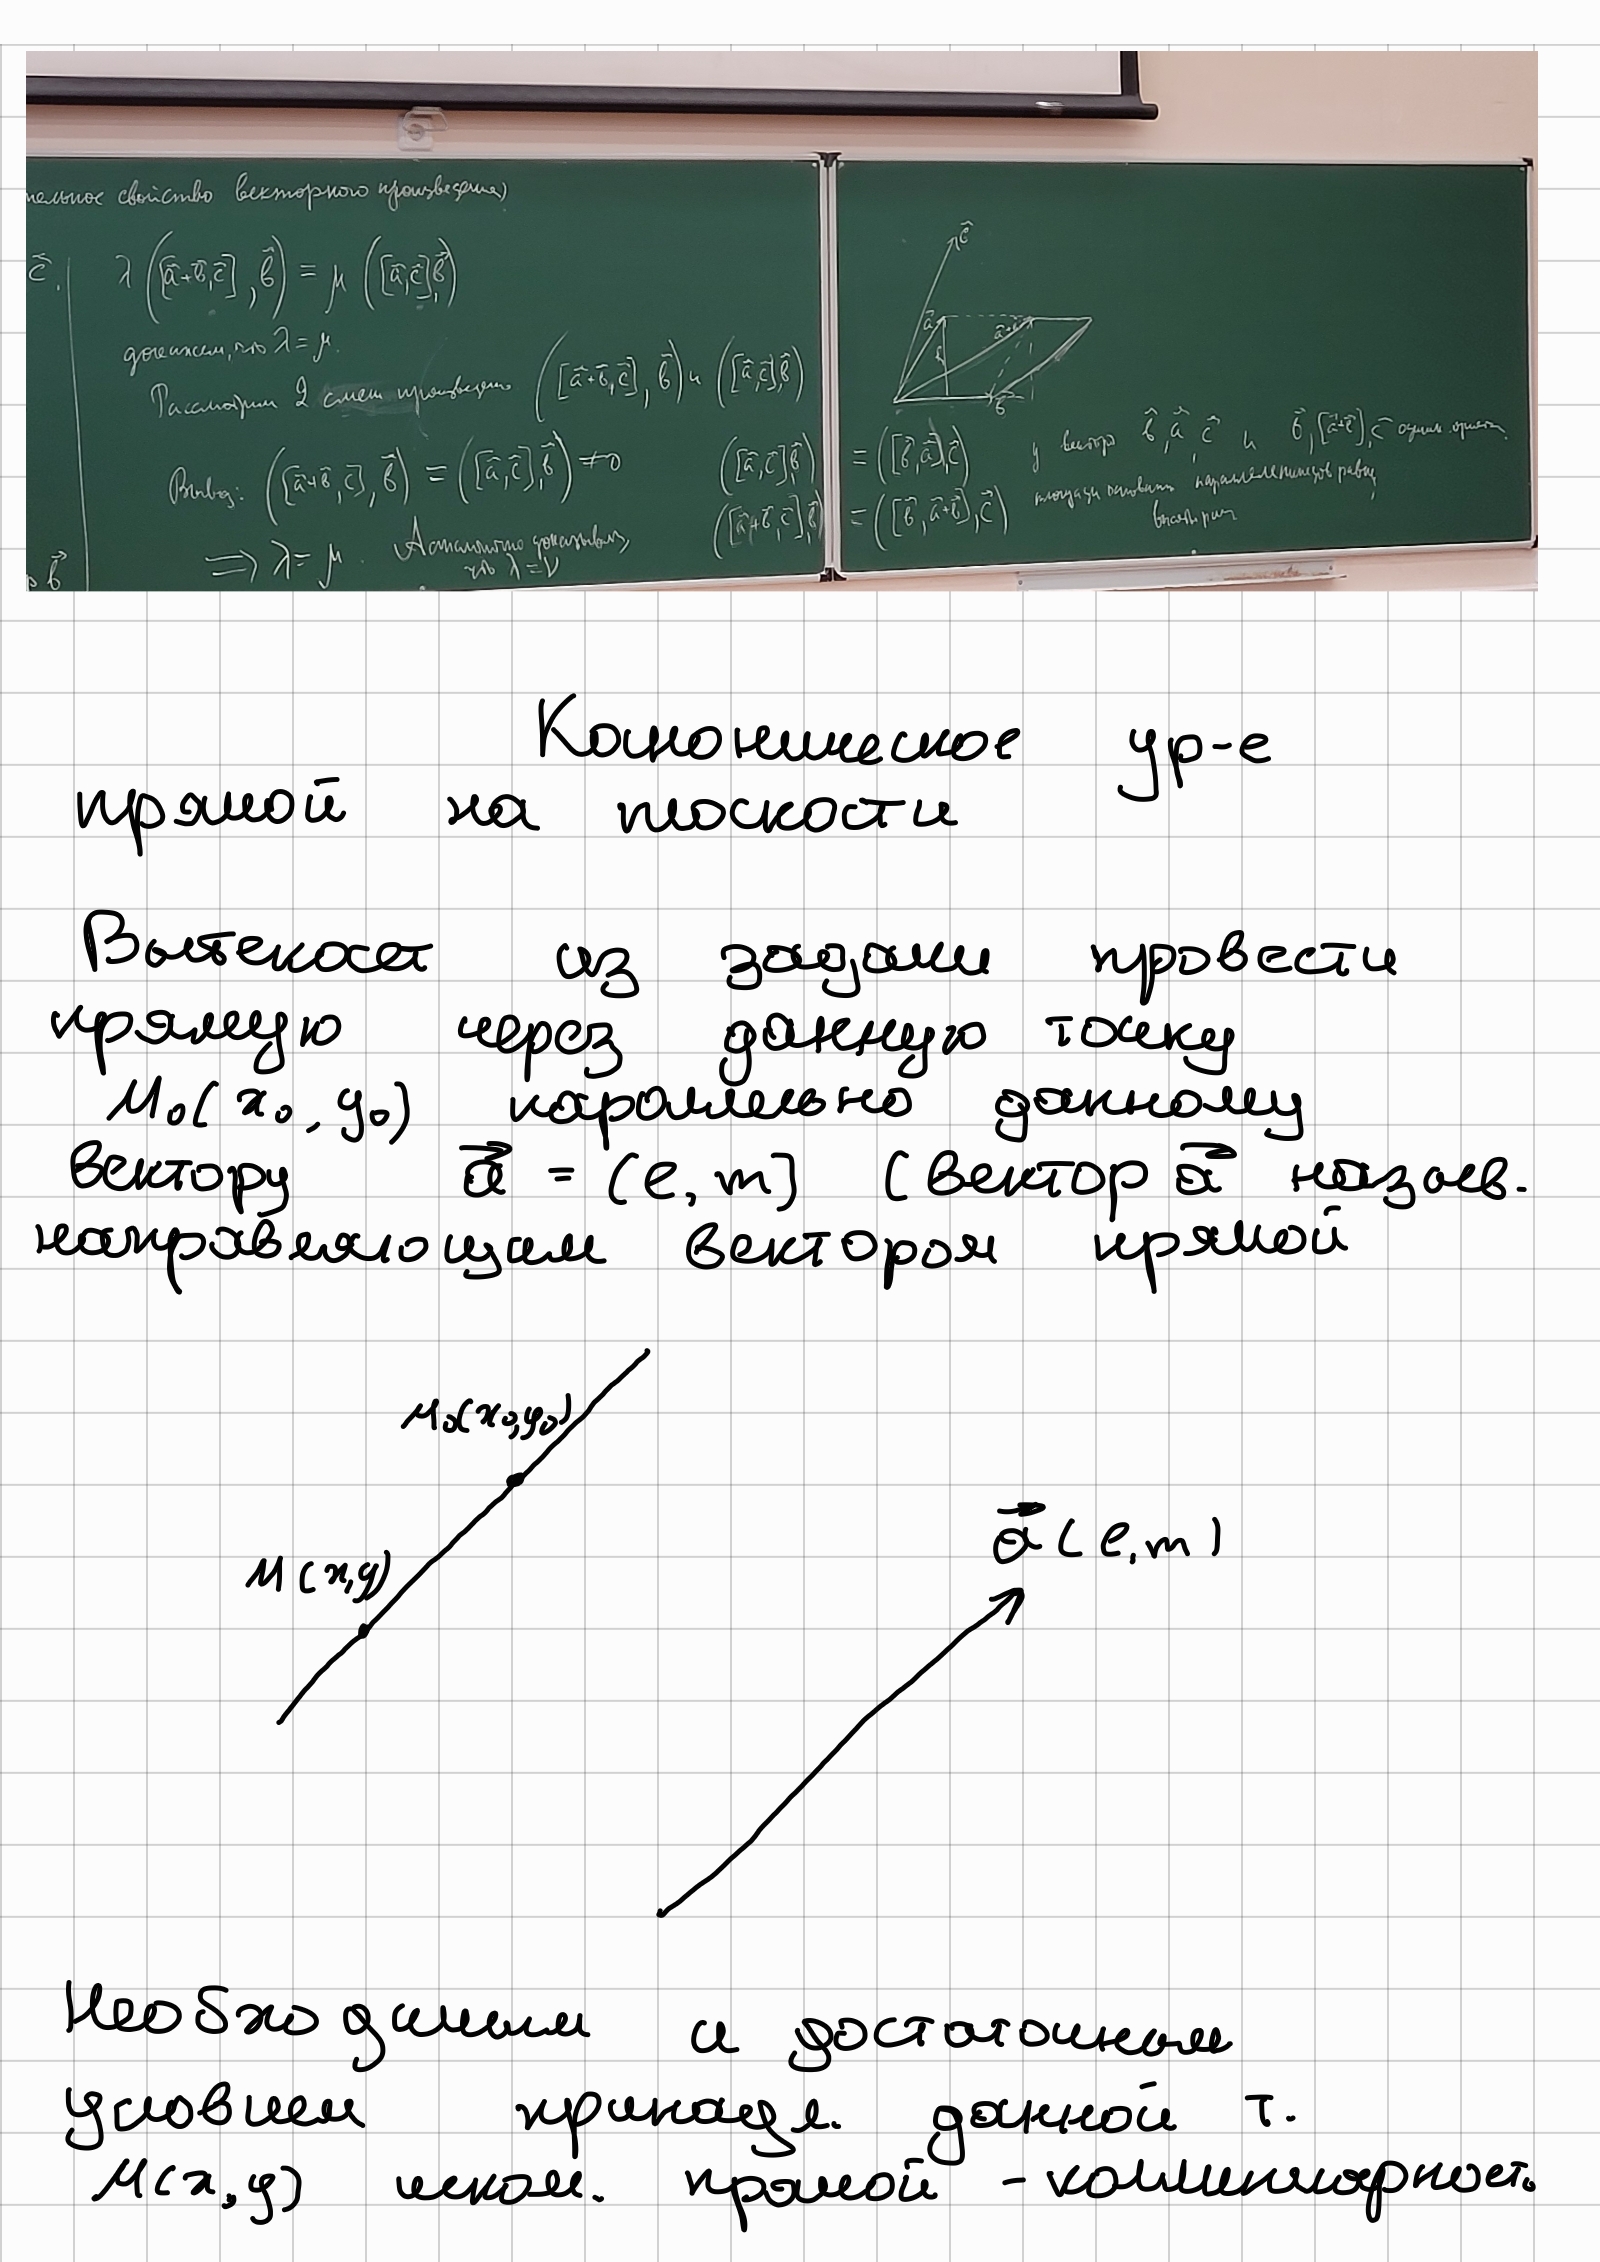 тельное свойство векторного произведения)
c⃗.
λ([a⃗+b⃗,c⃗],b⃗) = μ([a⃗,c⃗],b⃗)
докажем, что λ=μ.
Рассмотрим 2 смеш произведения ([a⃗+b⃗,c⃗],b⃗) и ([a⃗,c⃗]b⃗)
Вывод: ([a⃗+b⃗,c⃗],b⃗) = ([a⃗,c⃗],b⃗) ≠0
⟹ λ=μ. Аналогично доказываем,
что λ=ν
b⃗
([a⃗,c⃗]b⃗) = ([b⃗,a⃗],c⃗)
([a⃗+b⃗,c⃗]b⃗) = ([b⃗,a⃗+b⃗],c⃗)
c⃗
a⃗
a⃗+b⃗
b⃗
у вектор b⃗,a⃗,c⃗ и b⃗,[a⃗+b⃗],c⃗ одинак. ориент.
площади основань параллелепипедов равны,
высоты
Каноническое ур-е
прямой на плоскости
Вытекает из задачи провести
прямую через данную точку
M₀(x₀,y₀) параллельно данному
вектору a⃗ = (l,m) (вектор a⃗ назыв.
направляющим вектором прямой
M₀(x₀,y₀)
M(x,y)
a⃗(l,m)
Необходимым и достаточным
условием принадл. данной т.
M(x,y) иском. прямой - коллинеарность